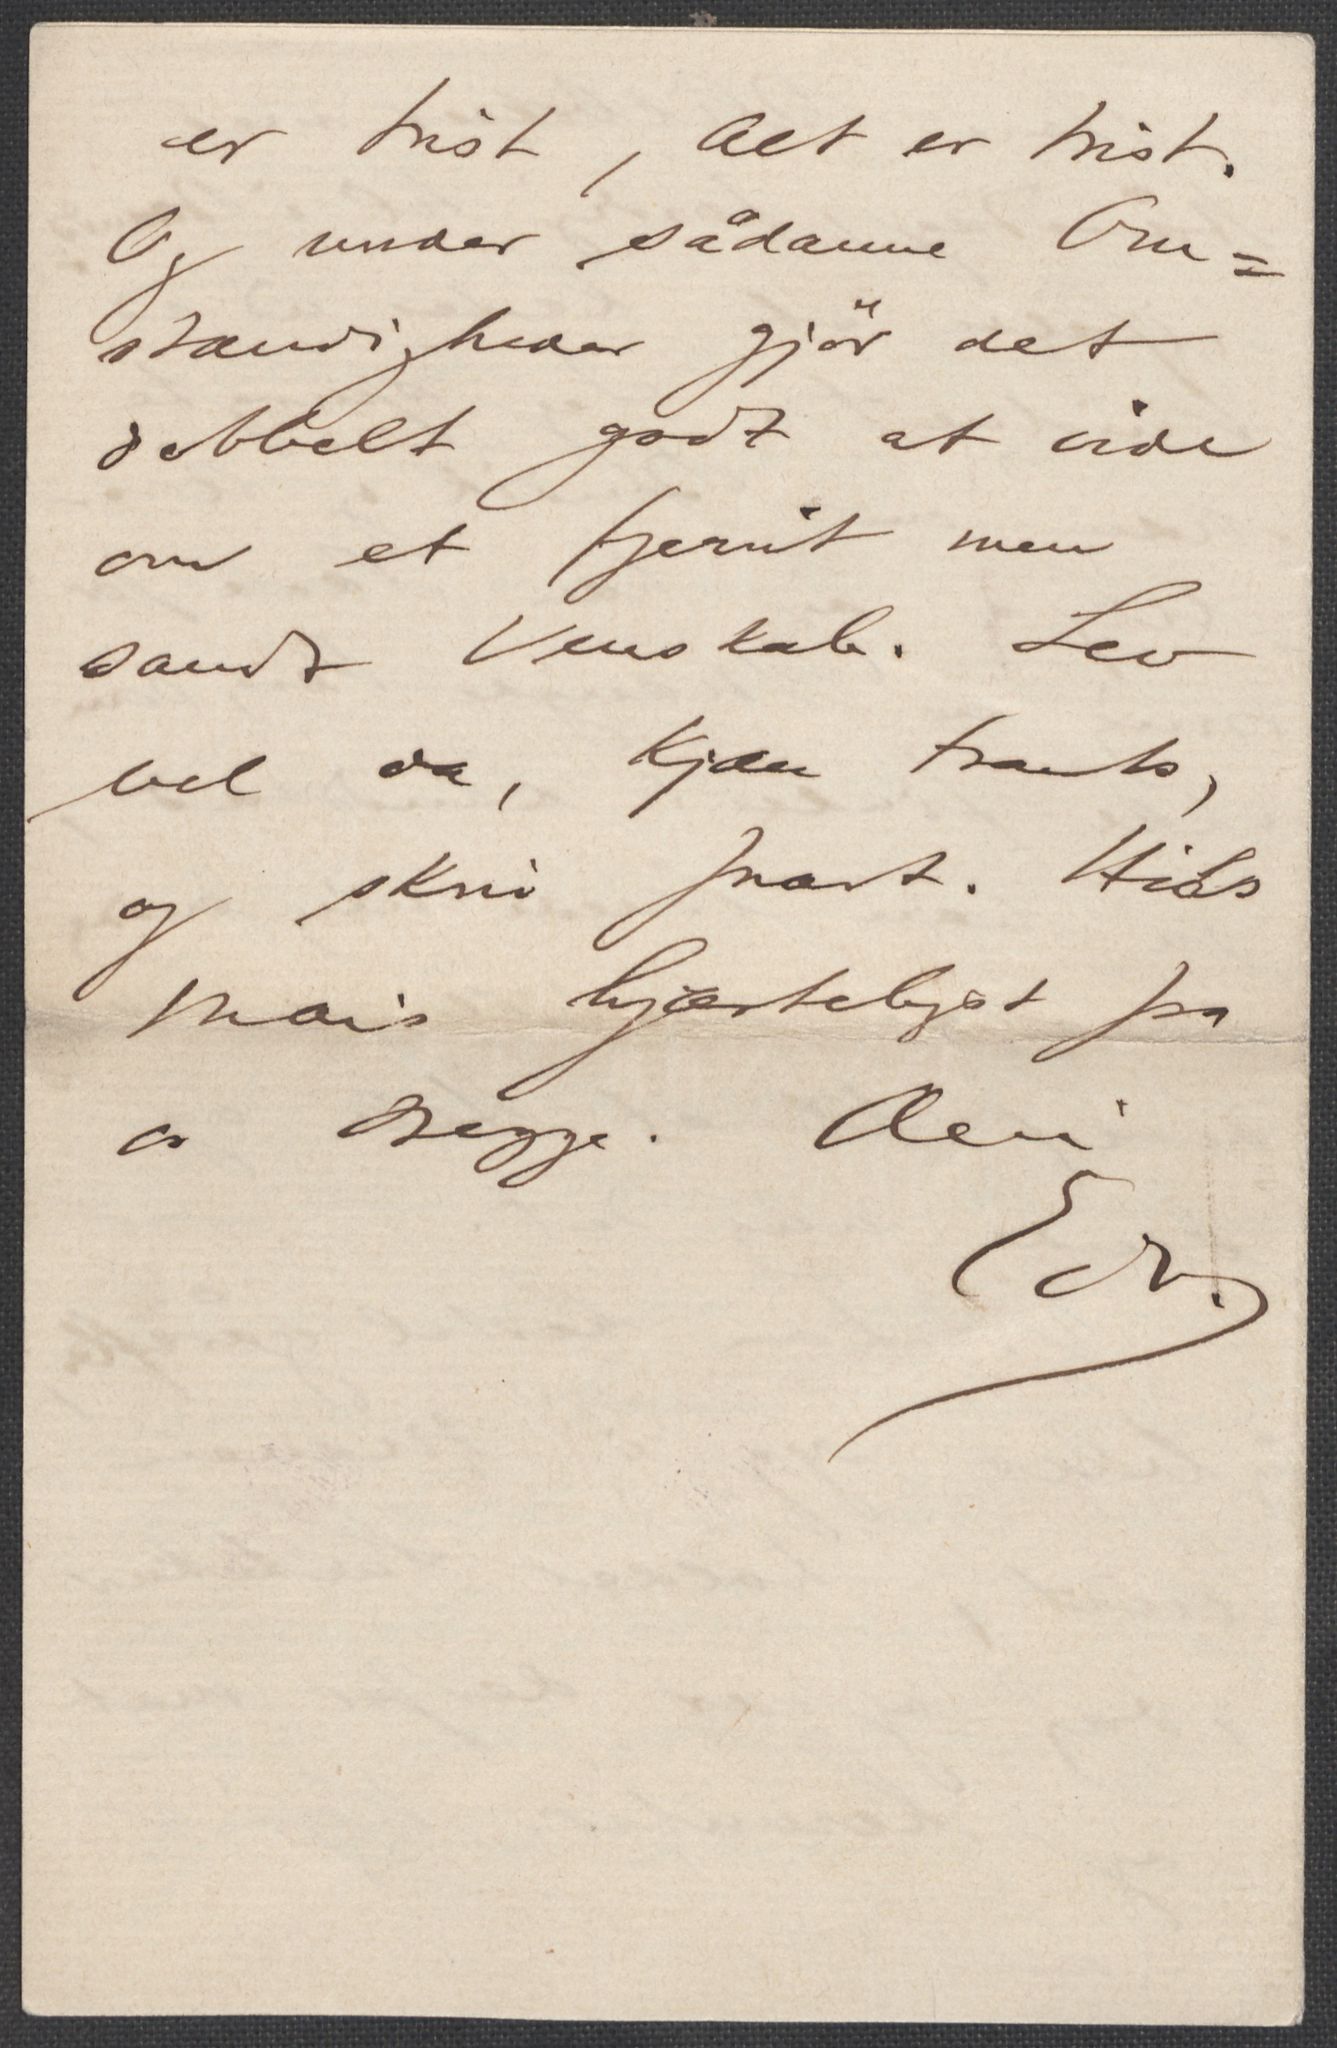 er trist, Alt er trist.
Og under sådanne Om=
stændigheder gjör det
dobbelt godt at vide
om et fjernt men
sandt Venskab. Lev
vel da, kjære Frants,
og skriv snart. Hils
Maris hjærteligst fra
os Begge. Din
Edv.